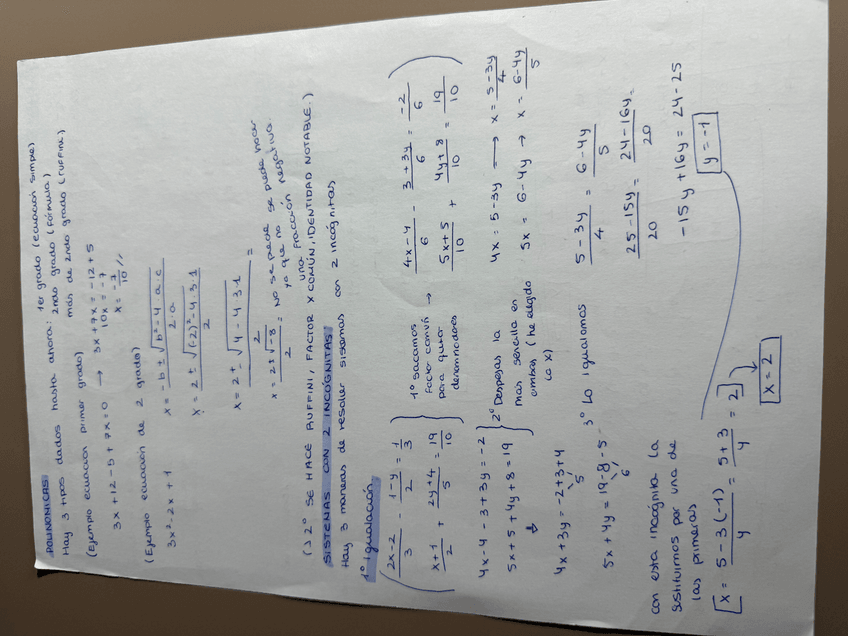 POLINOMICAS
Hay 3 tipos dados hasta ahora: 1er grado (ecuación simple)
2ndo grado (fórmula)
más de 2ndo grado (ruffini)
(Ejemplo ecuación primer grado)
3x + 12 - 5 + 7x = 0 → 3x + 7x = -12 + 5
10x = -7
x = -7/10 //
(Ejemplo ecuación de 2 grado)
3x² - 2x + 1
x = -b ± √(b² - 4·a·c) / 2·a
x = 2 ± √((-2)² - 4·3·1) / 2
x = 2 ± √(4 - 4·3·1) / 2 =
x = 2 ± √-8 / 2 = No se puede hacer
ya que no se puede una fracción negativo.
(>2º SE HACE RUFFINI, FACTOR X COMÚN, IDENTIDAD NOTABLE.)
SISTEMAS CON 2 INCÓGNITAS
Hay 3 maneras de resolver sistemas con 2 incógnitas
1º Igualación
2x-2/3 - 1-y/2 = 1/3
x+1/2 + 2y+4/5 = 19/10
1º sacamos
factor común →
para quitar
denominadores
4x-4/6 - 3+3y/6 = -2/6
5x+5/10 + 4y+8/10 = 19/10
4x - 4 - 3 + 3y = -2
5x + 5 + 4y + 8 = 19
2º Despejas la
más sencilla en
ambas (he elegido
la x)
4x = 5 - 3y → x = 5-3y/4
5x = 6 - 4y → x = 6-4y/5
4x + 3y = -2+3+4
5
5x + 4y = 19-8-5
6
3º Lo igualamos
5-3y/4 = 6-4y/5
25-15y/20 = 24-16y/20 =
-15y + 16y = 24 - 25
y = -1
con esta incógnita la
sustituimos por una de
las primeras
x = 5-3(-1)/4 = 5+3/4 = 2
x = 2